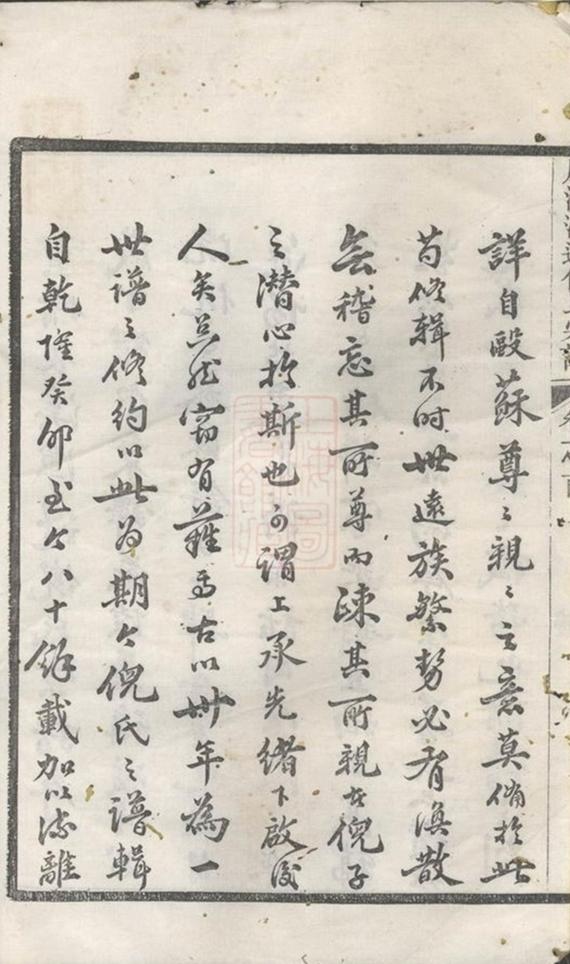 詳自歐蘇尊之親之之意莫備於此
苟修輯不時世遠族繁勢必有渙散
無稽忘其所尊而疎其所親者倪子
之潜心於斯也可謂上承先緒下啟後
人矣然竊有難焉古以卅年為一
世譜之修約以此為期今倪氏之譜輯
自乾隆癸卯至今八十餘載加以流離